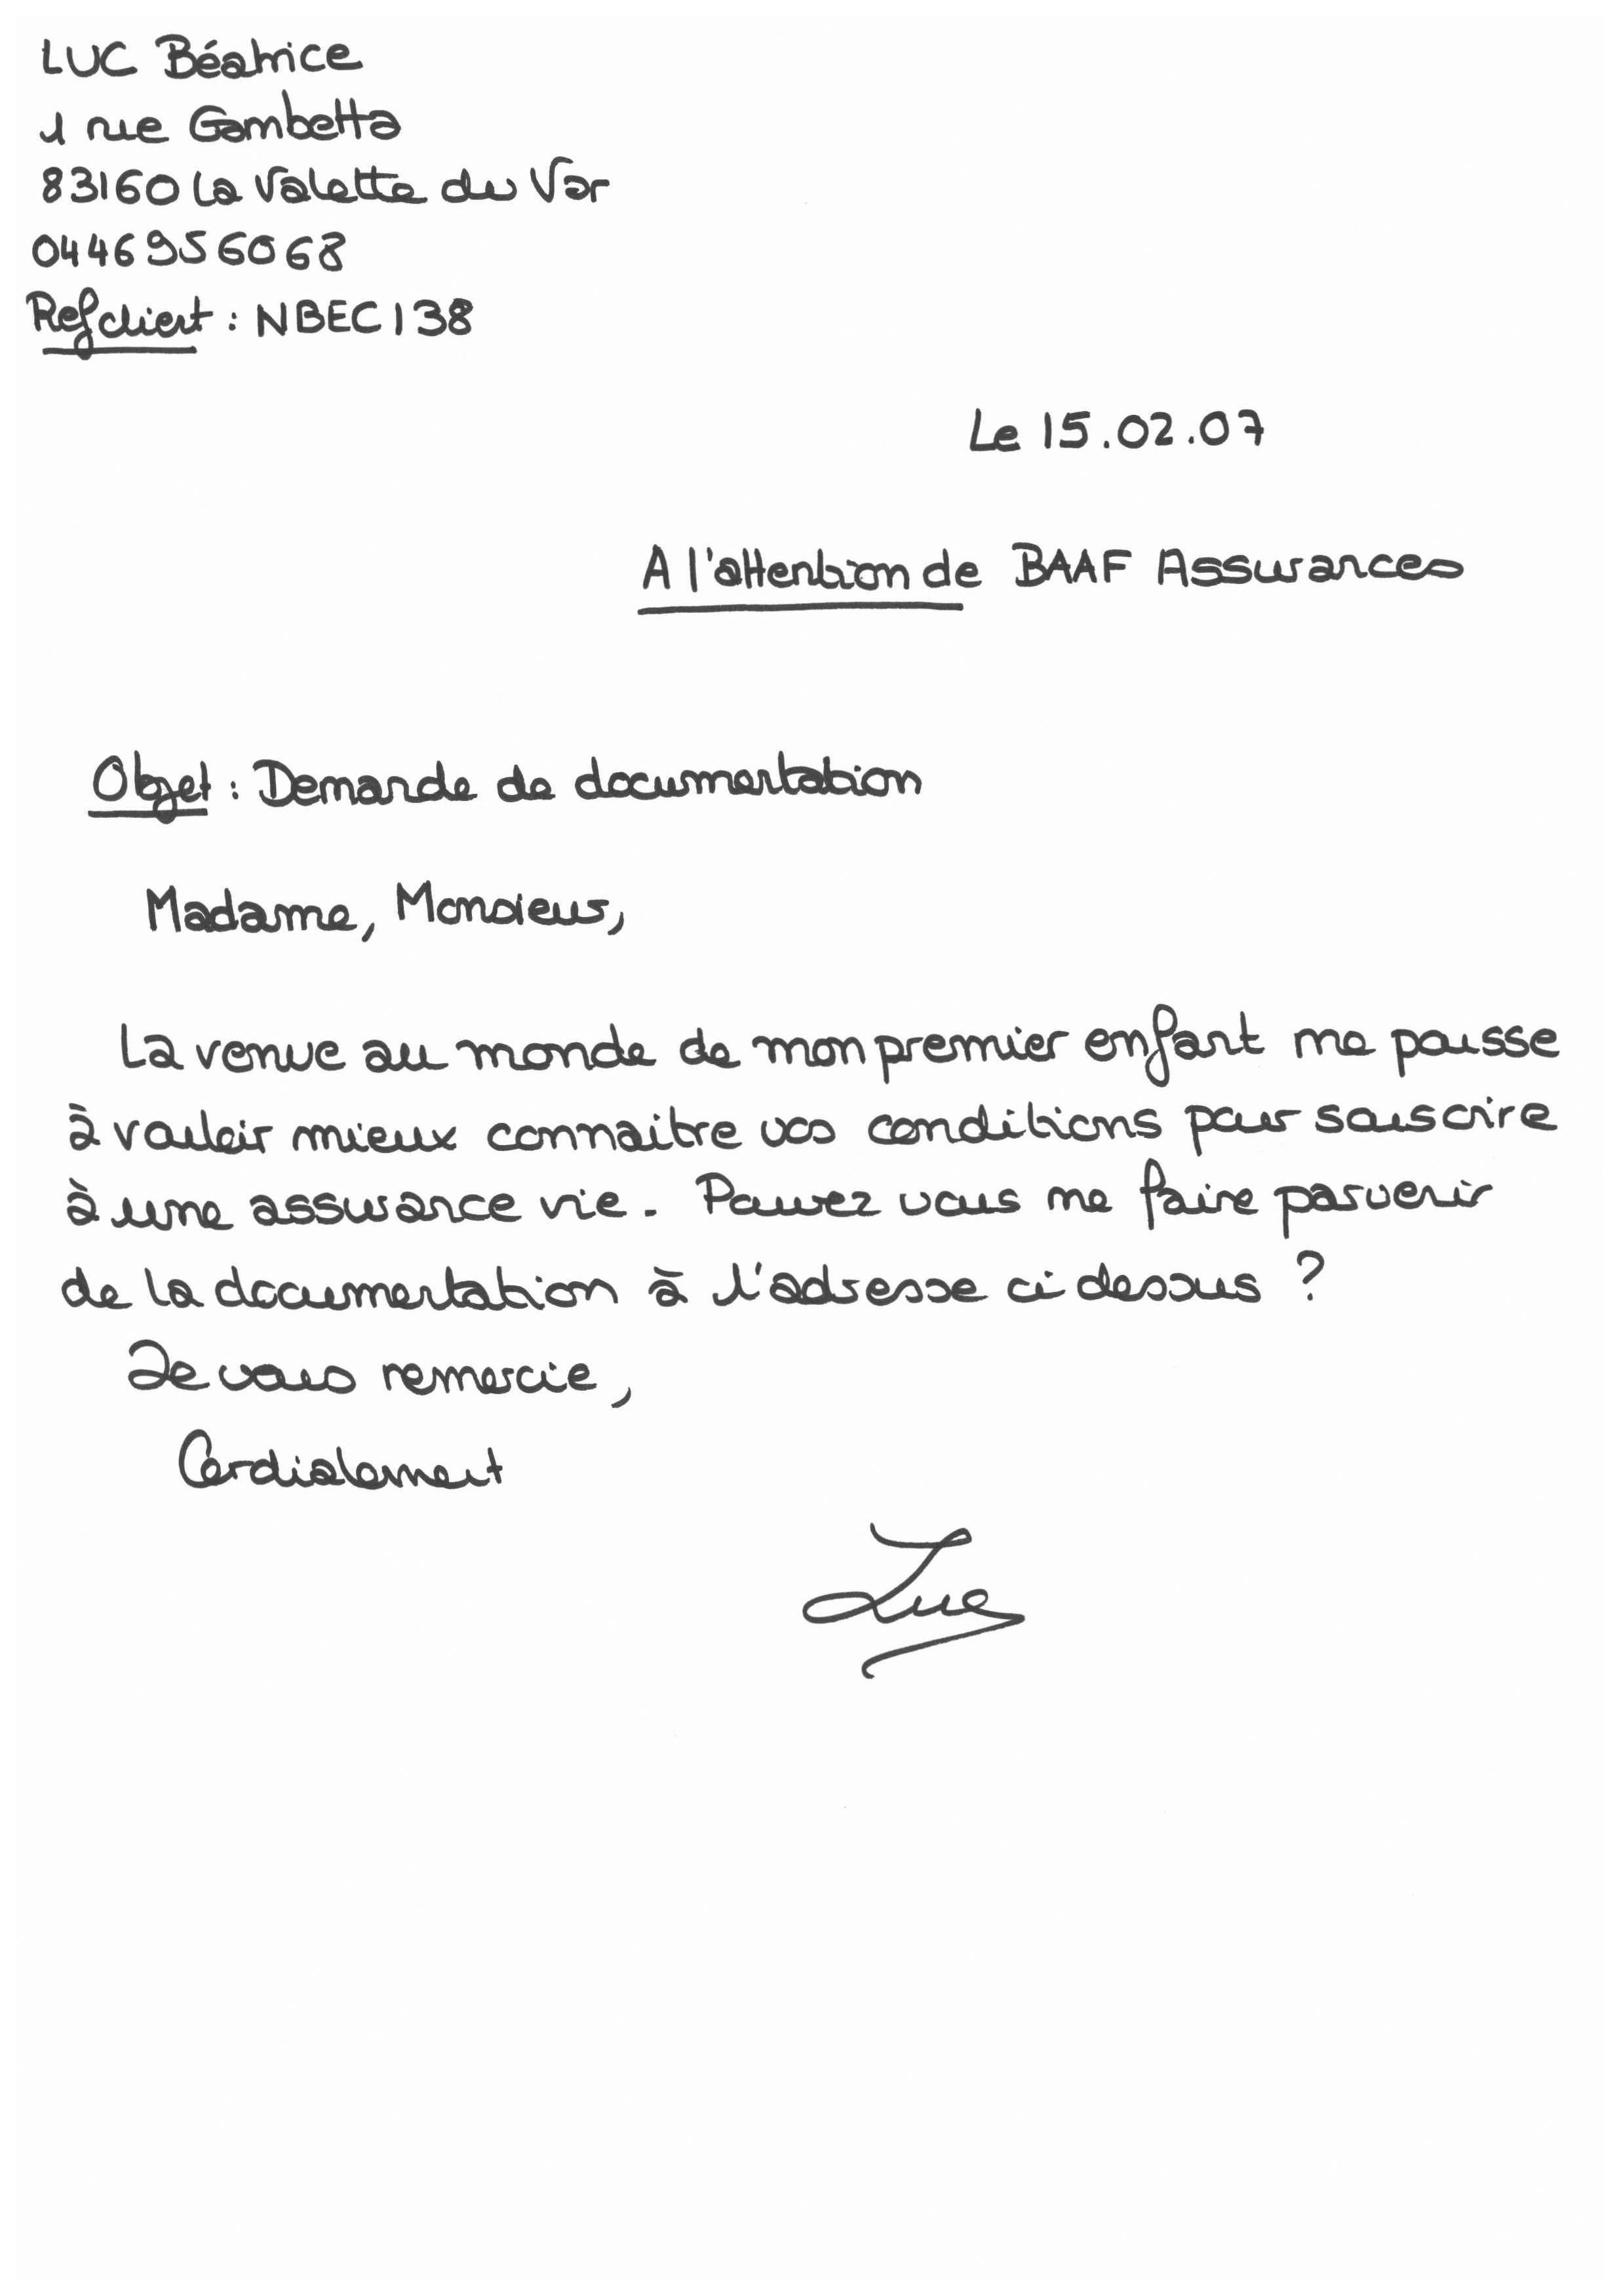 LUC Béatrice
1 rue Gambetta
83160 La Valette du Var
0446956068
Ref client : NBEC138
Le 15.02.07
A l'attention de BAAF Assurances
Objet : Demande de documentation
Madame, Monsieur,
La venue au monde de mon premier enfant me pousse
à vouloir mieux connaitre vos conditions pour souscrire
à une assurance vie. Pouvez vous me faire parvenir
de la documentation à l'adresse ci dessus ?
Je vous remercie,
Cordialement
Luc